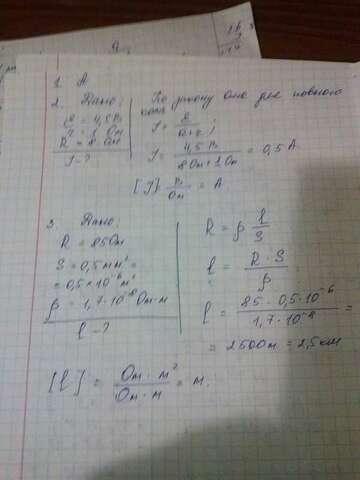 1. А
2. Дано:
ε = 4,5 В
r = 1 Ом
R = 8 Ом
I - ?
По закону Ома для полного
I = ε / R + r ;
I = 4,5 В / 8 Ом + 1 Ом = 0,5 А
[I] = В / Ом = А
3. Дано:
R = 85 Ом
S = 0,5 мм² =
= 0,5 × 10⁻⁶ м²
ρ = 1,7 · 10⁻⁸ Ом · м
l - ?
R = ρ l / S
l = R · S / ρ
l = 85 · 0,5 · 10⁻⁶ / 1,7 · 10⁻⁸ =
= 2500 м = 2,5 км
[l] = Ом · м² / Ом · м = м.